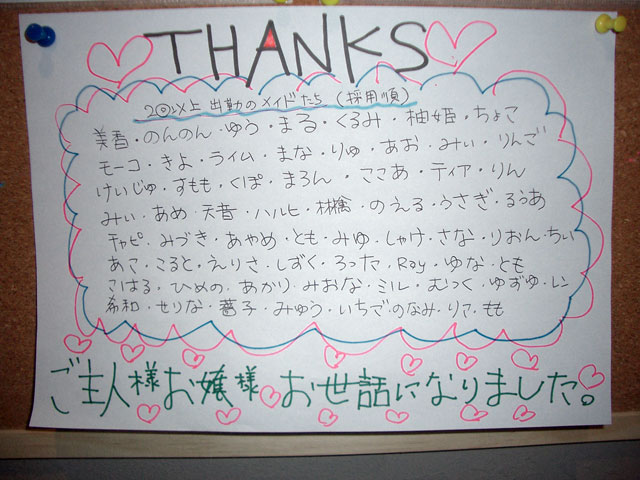 THANKS
20以上 出勤のメイドたち (採用順)
美香・のんのん・ゆう・まる・くるみ・柚姫・ちょこ
モーコ・きよ・ライム・まな・りゅ・あお・みい・りんご
けいじゅ・すもも・くぽ・まろん・ここあ・ティア・りん
みい・あめ・天音・ハルヒ・林檎・のえる・うさぎ・るぅあ
チャピ・みづき・あやめ・とも・みゆ・しゃけ・さな・りおん・ちぃ
あこ・こると・えりさ・しずく・ろった・Ray・ゆな・とも
こはる・ひめの・あかり・みおな・ミル・むっく・ゆずゆ・レン
希和・せりな・薔子・みゅう・いちご・のなみ・りマ・もも
ご主人様お嬢様お世話になりました。